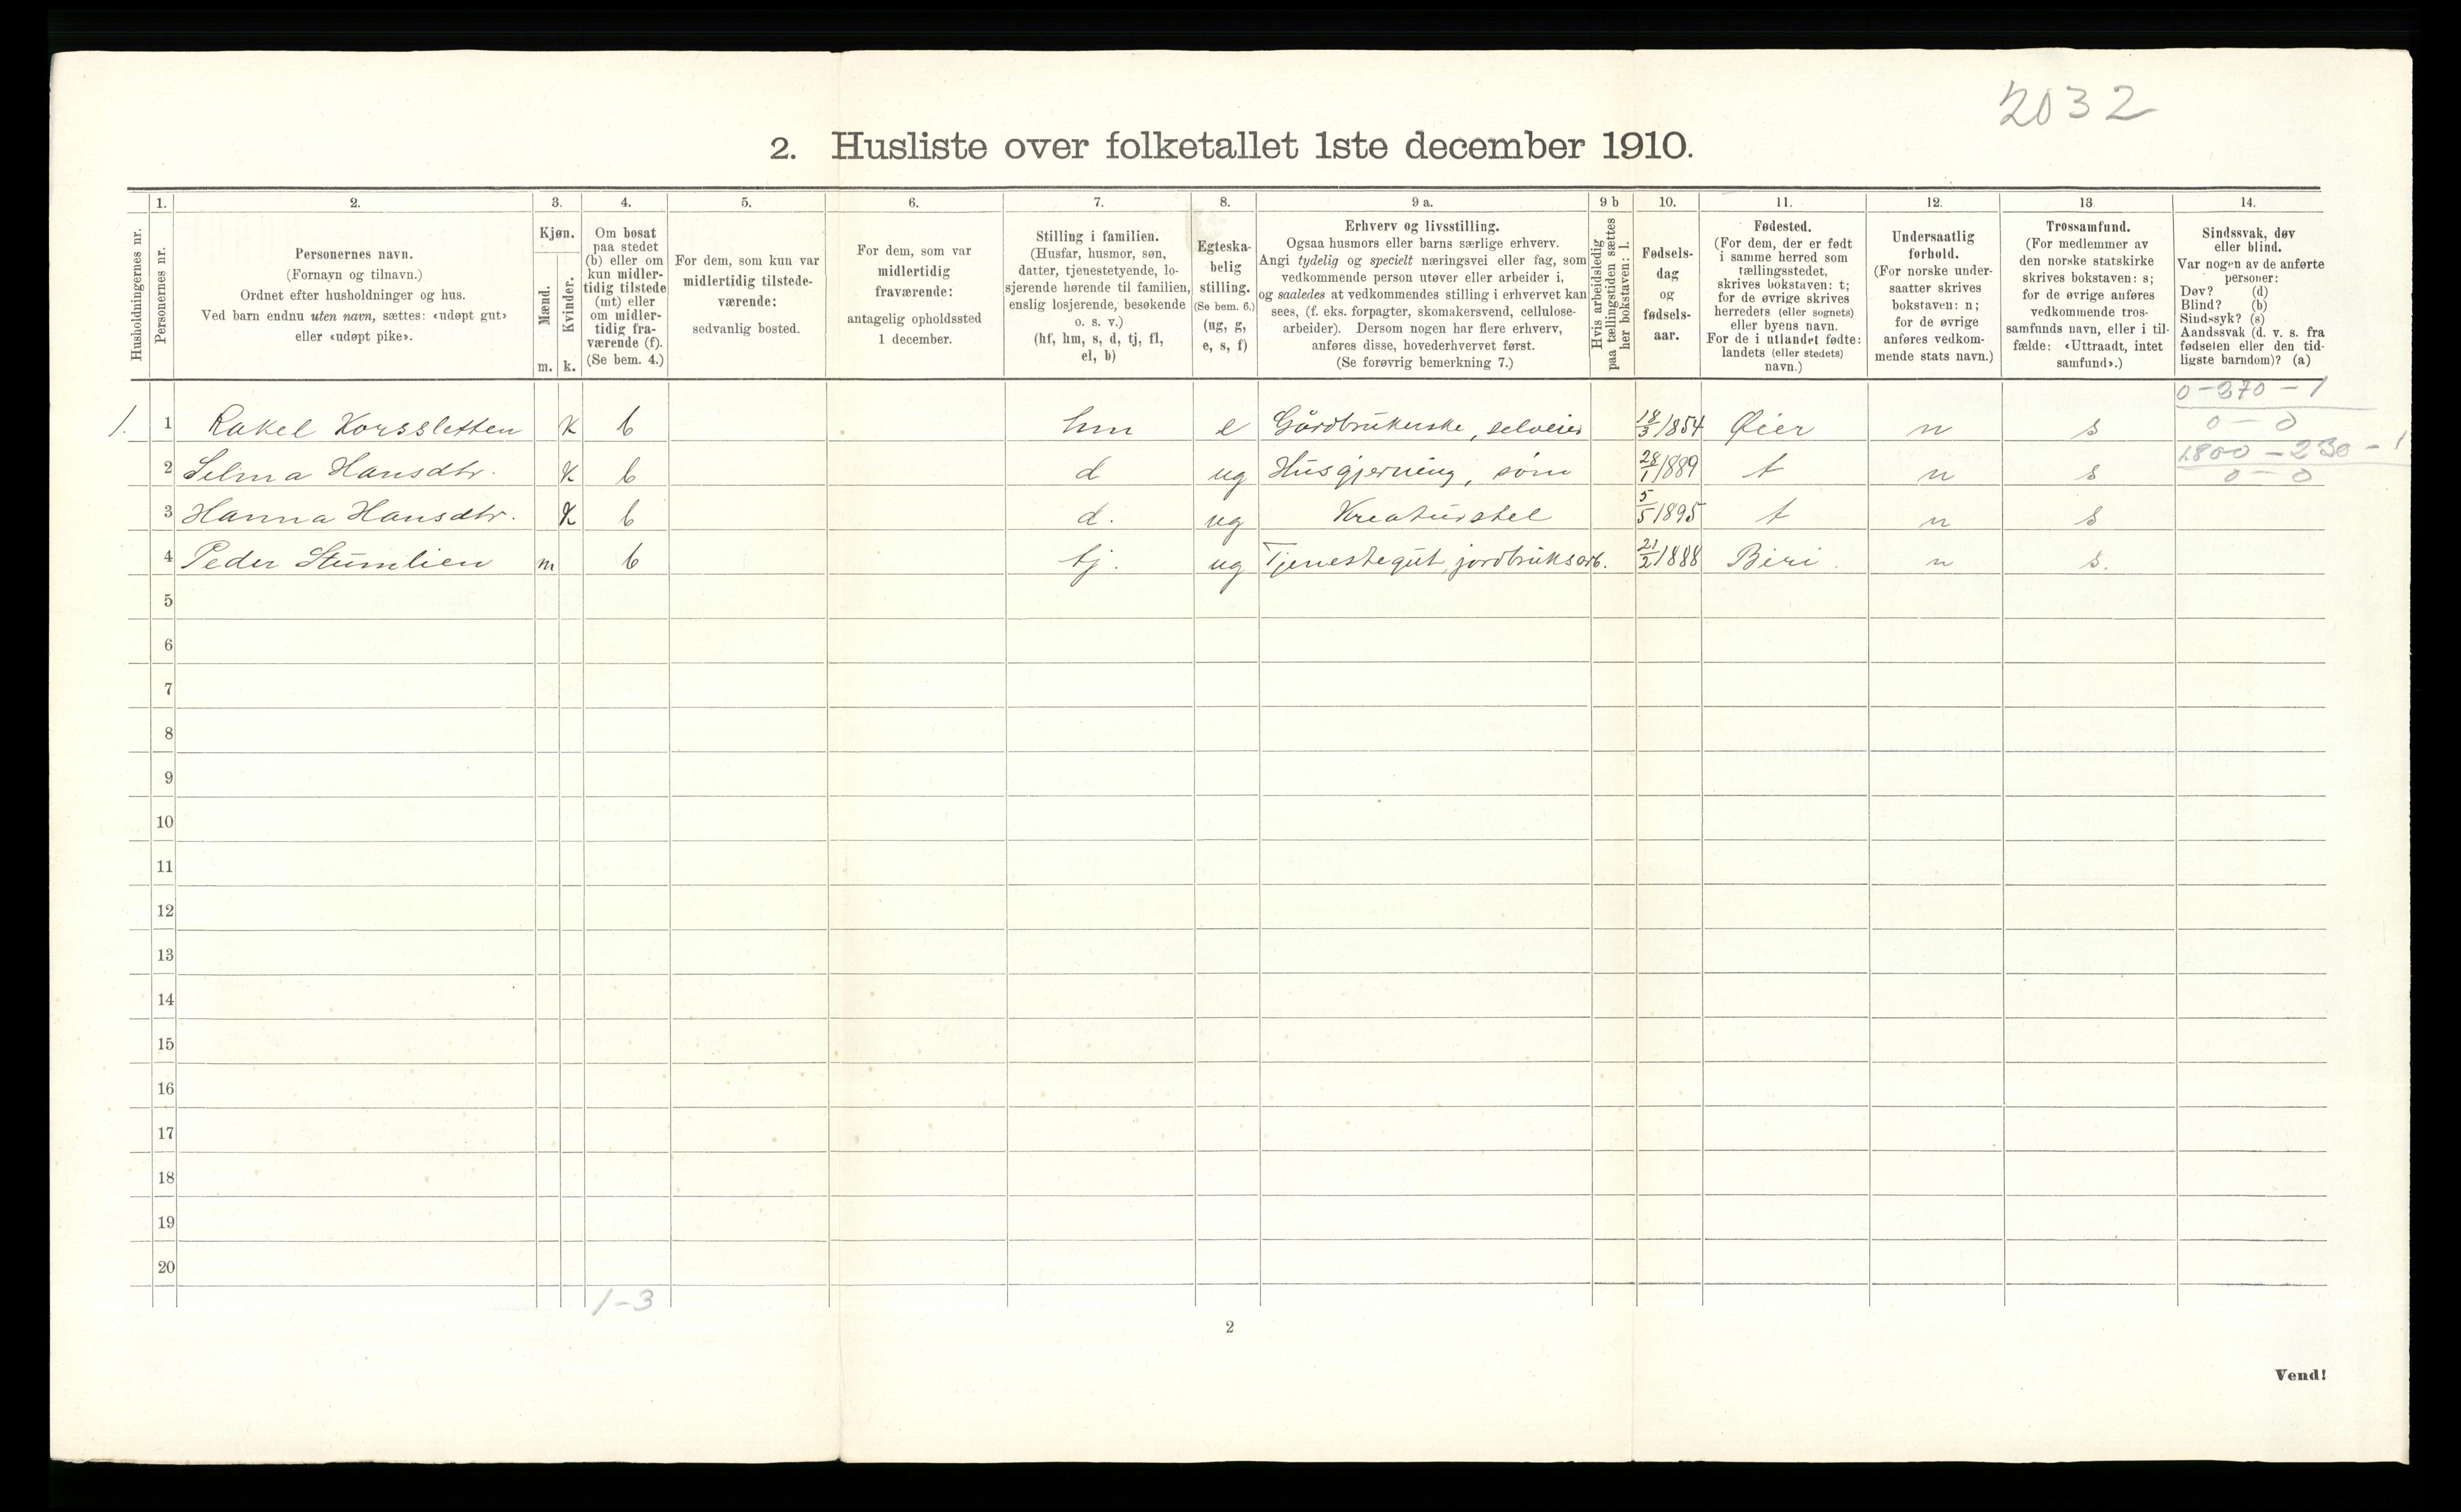 2032
2. Husliste over folketallet 1ste december 1910.
Husholdningernes nr.
1.
Personernes nr.
2.
Personernes navn.
(Fornavn og tilnavn.)
Ordnet efter husholdninger og hus.
Ved barn endnu uten navn, sættes: «udøpt gut»
eller «udøpt pike».
3.
Kjøn.
Mænd.
Kvinder.
m. k.
4.
Om bosat
paa stedet
(b) eller om
kun midler-
tidig tilstede
(mt) eller
om midler-
tidig fra-
værende (f).
(Se bem. 4.)
5.
For dem, som kun var
midlertidig tilstede-
værende:
sedvanlig bosted.
6.
For dem, som var
midlertidig
fraværende:
antagelig opholdssted
1 december.
7.
Stilling i familien.
(Husfar, husmor, søn,
datter, tjenestetyende, lo-
sjerende hørende til familien,
enslig losjerende, besøkende
o. s. v.)
(hf, hm, s, d, tj, fl,
el, b)
8.
Egteska-
belig
stilling.
(Se bem. 6.)
(ug, g,
e, s, f)
9 a.
Erhverv og livsstilling.
Ogsaa husmors eller barns særlige erhverv.
Angi tydelig og specielt næringsvei eller fag, som
vedkommende person utøver eller arbeider i,
og saaledes at vedkommendes stilling i erhvervet kan
sees, (f. eks. forpagter, skomakersvend, cellulose-
arbeider). Dersom nogen har flere erhverv,
anføres disse, hovederhvervet først.
(Se forøvrig bemerkning 7.)
9 b
Hvis arbeidsledig
paa tællingstiden sættes
her bokstaven: l.
10.
Fødsels-
dag
og
fødsels-
aar.
11.
Fødested.
(For dem, der er født
i samme herred som
tællingsstedet,
skrives bokstaven: t;
for de øvrige skrives
herredets (eller sognets)
eller byens navn.
For de i utlandet fødte:
landets (eller stedets)
navn.)
12.
Undersaatlig
forhold.
(For norske under-
saatter skrives
bokstaven: n;
for de øvrige
anføres vedkom-
mende stats navn.)
13
Trossamfund.
(For medlemmer av
den norske statskirke
skrives bokstaven: s;
for de øvrige anføres
vedkommende tros-
samfunds navn, eller i til-
fælde: «Uttraadt, intet
samfund».)
14.
Sindssvak, døv
eller blind.
Var nogen av de anførte
personer:
Døv? (d)
Blind? (b)
Sindssyk? (s)
Aandssvak (d. v. s. fra
fødselen eller den tid-
ligste barndom)? (a)
0-370-1
1. 1 Rakel Korssletten K b hm e Gårdbrukerske, selveier 18/3 1854 Øier n s 0-0
1800-230-1
2 Selma Hansdtr. K b d ug Husgjerning, søm 28/1 1889 t n s 0-0
3 Hanna Hansdtr. K b d. ug Kreaturstel 5/5 1895 t n s
4 Peder Stumlien m b tj. ug Tjenestegut, jordbruksarb. 21/2 1888 Biri. n s.
5
6
7
8
9
10
11
12
13
14
15
16
17
18
19
20
1-3
2
Vend!